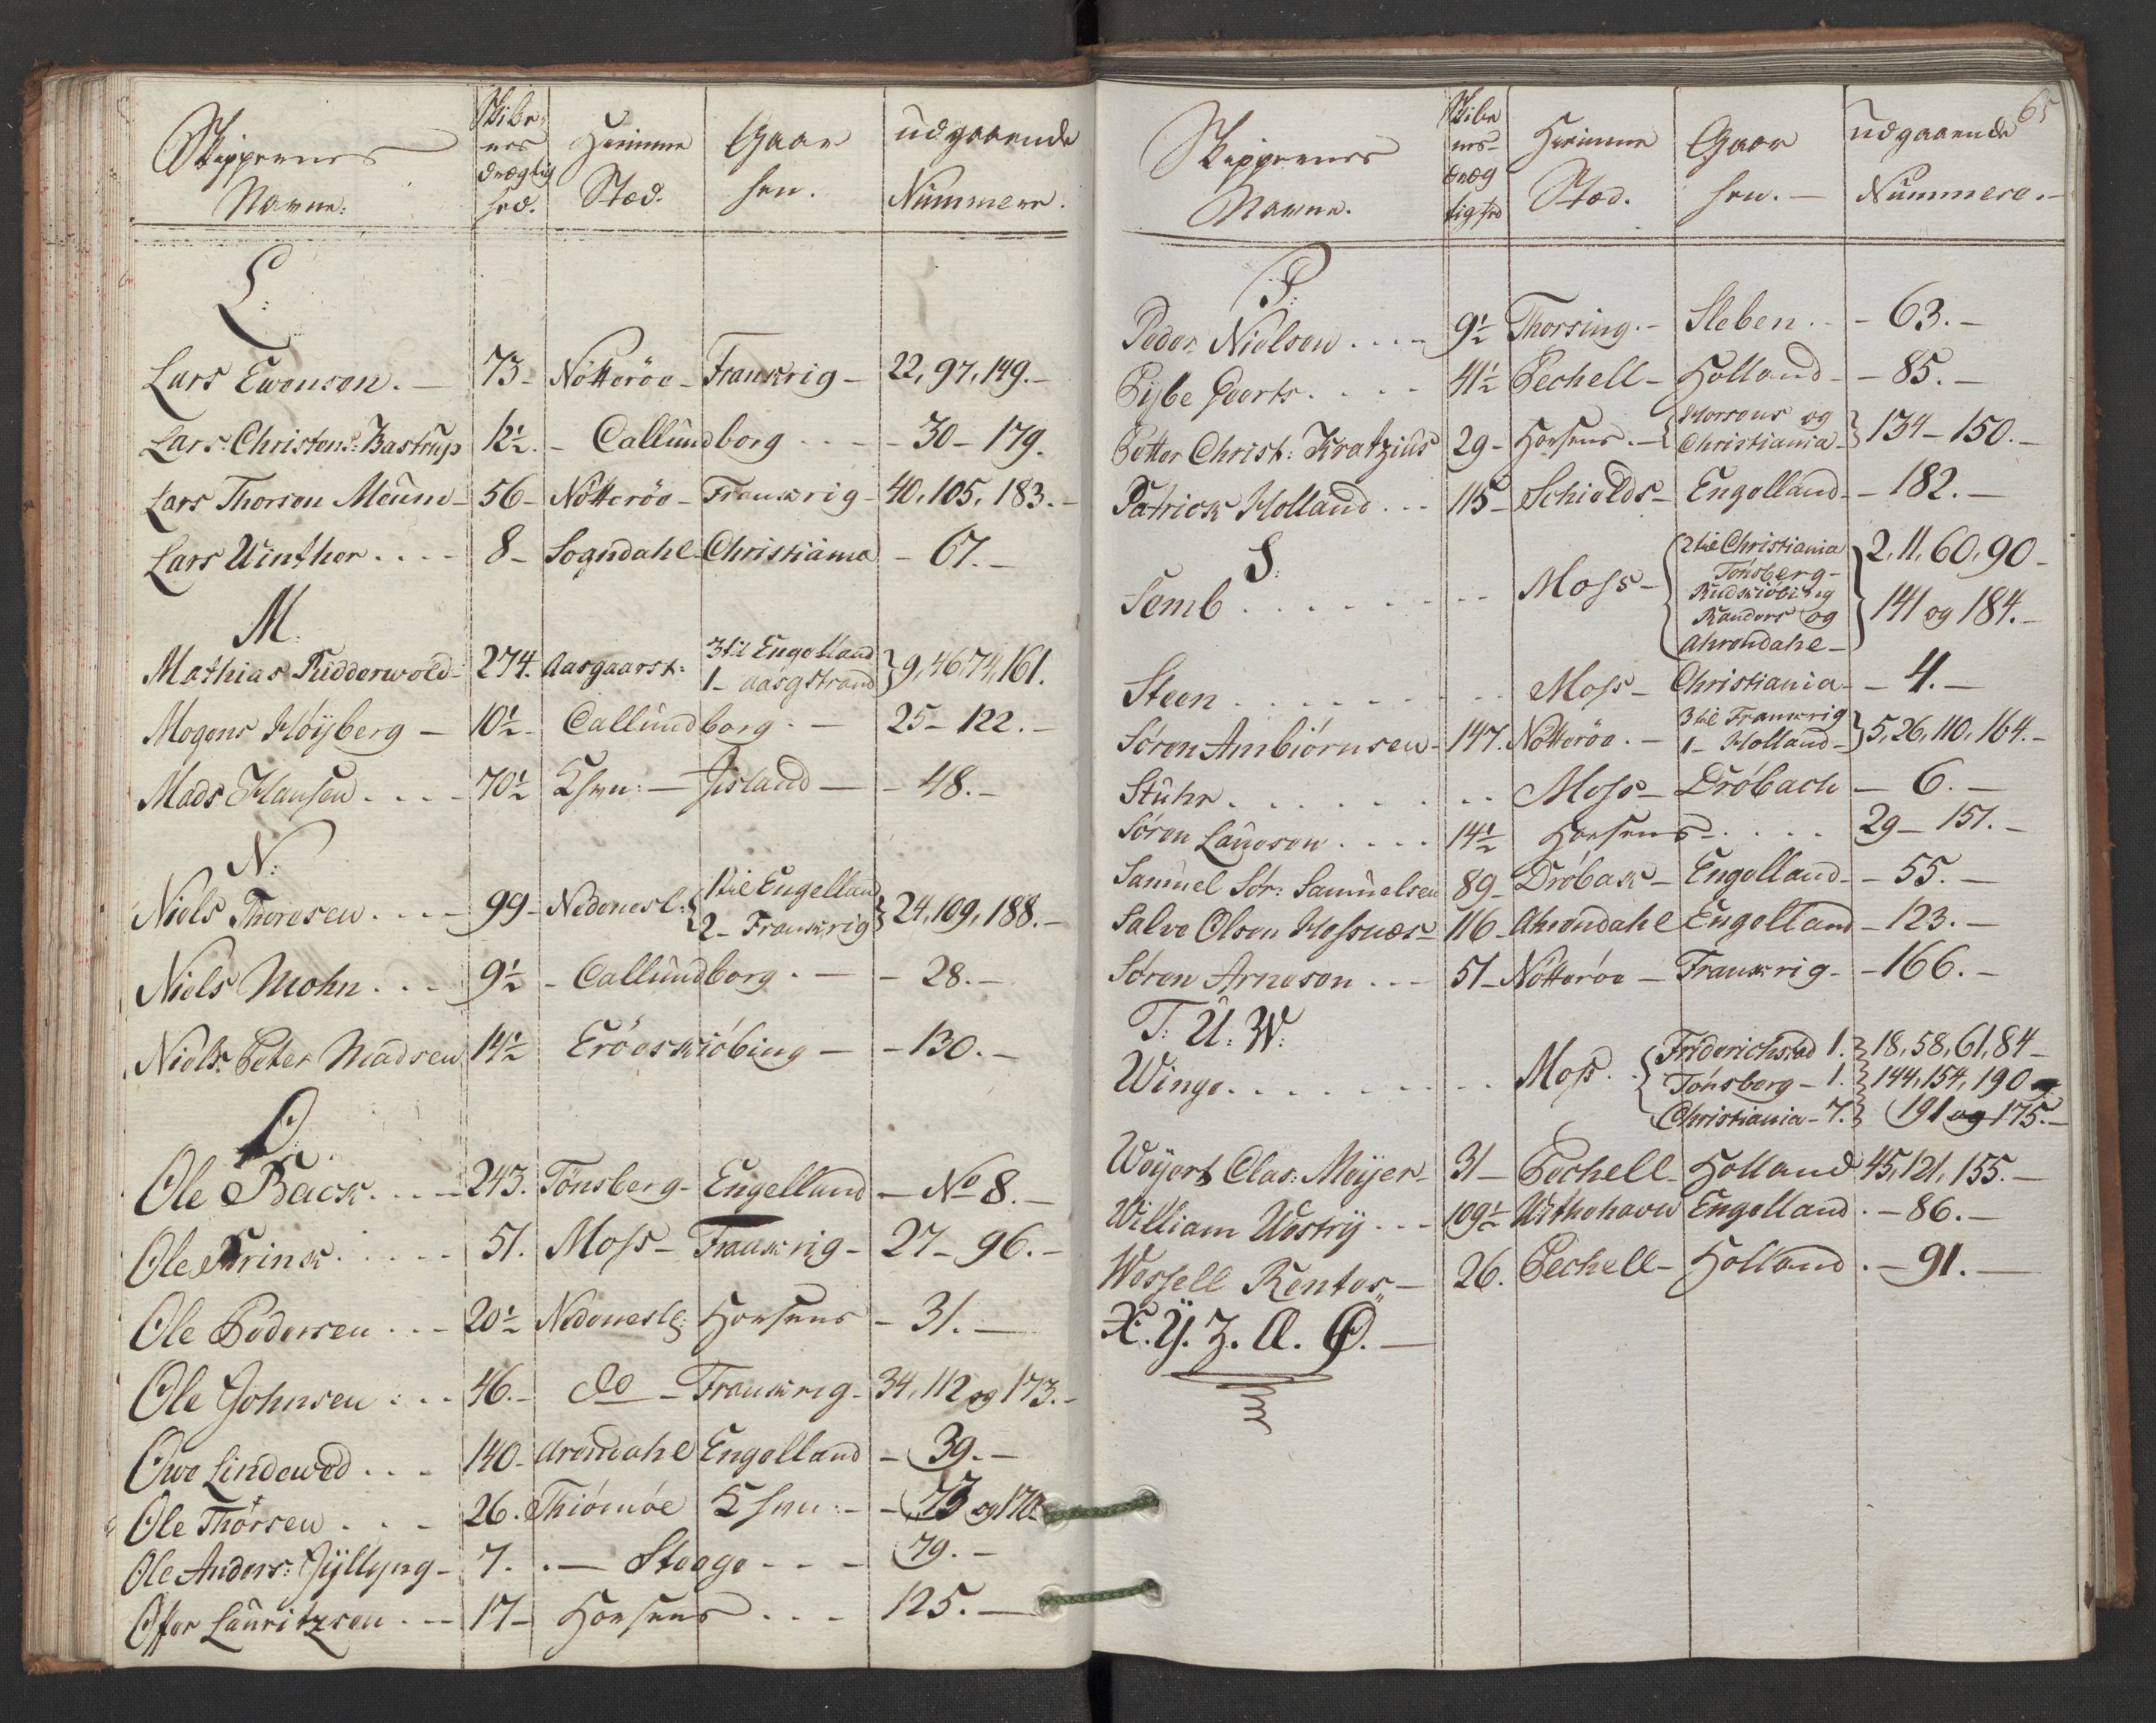 Skippernes Navne: Skibernes drægtighed. Hiemme Sted. Gaar hen. udgaaende Nummere.
L:
Lars Ewensen. — 73 — Nötteröe — Frankrig — 22, 97, 149. —
Lars Christens: Bastrup 12½. — Callundborg - - - 30 — 179.
Lars Thorsen Moum — 56 — Nötteröe — Frankrig — 40, 105, 183. —
Lars Winther . . . . 8 — Sogndahl — Christiania — 67. —
M.
Mathias Ridderwold — 274. Aasgaarst: 3 til Engelland } 9, 46, 74, 161.
1 — Aasgstrand
Mogens Höÿberg — 10½ — Callundborg . — 25 — 122. —
Mads Hansen . . . . 70½ Khvn: — Jisland — — 48. —
N:
Niels Thoresen . . . . 99 — Nedenesl: { 1 til Engelland } 24, 109, 188. —
2 — Frankrig
Niels Mohn . . . 9½ — Callundborg . — — 28. —
Niels Peter Madsen 14½ Eröeskiöbing — — 130. —
O.
Ole Back . . . — 243. Tönsberg — Engelland — No 8. —
Ole Prink . . . . . 51. Moss — Frankrig — 27 — 96. —
Ole Pedersen . . — 20½ Nedenesle: Horsens — 31. —
Ole Johnsen : . . 46. — do — Frankrig — 34, 112 og 173. —
Owe Lindewed . . . 140 — Arendahl Engelland — 39. —
Ole Thorsen . . . — 26. Thiömöe Khvn: — — 73 og 170
Ole Anders: Jÿllyng — 7. . — Steege - - - 79. —
Offer Lauritzsen . — 17 — Horsens . . . 125. —
65
Skippernes Navne. Skibernes drægtighed Hiemme Sted. Gaar hen. — udgaaende Nummere. —
P:
Peder Nielsen . . . . 9½ Thorsing. — Sleben . . — 63. —
Pÿbe Geerts . . . . 41½ Pechell — Holland — — 85. —
Petter Christ: Kratzius 29 — Horsens. — { Horsens og } 134 — 150. —
Christiania —
Patrick Holland . . . 115 — Schields — Engelland — — 182. —
S:
Semb . . . . . . . Moss — { 2 til Christiania } 2, 11, 60, 90 —
Tönsberg —
Rudkiöbing
Randers og 141 og 184. —
Ahrendahl —
Steen . . . . . . . Moss — Christiania — — 4. —
Sören Ambiörnsen — 147. Nötteröe. — 3 til Frankrig } 5, 26, 110, 164. —
1 — Holland —
Stuhr . . . . . . . . Moss — Dröbach — 6. —
Sören Laugsen . . . . 14½ Horsens — . . . . 29 — 151. —
Samuel Sör: Samuelsen 89 — Dröbak — Engelland — — 55. —
Salve Olsen Hossnæs — 116 — Ahrendahl Engelland — 123. —
Sören Arnesen . . . 51 — Nötteröe — Frankrig — — 166. —
T: U: W:
Winge . . . . . . . . . Moss . { Friderichstad 1. } 18, 58, 61, 84 —
Tönsberg — 1. } 144, 154, 190
Christiania — 7. } 191 og 175. —
Weÿert Clas: Meÿer — 31 — Pechell — Holland 45, 121, 155. —
William Westrÿ . . . 109½ Withehavn Engelland . — 86. —
Wessell Rentes — 26. Pechell — Holland . — 91. —
X. Y. Z. Æ. Ø. —